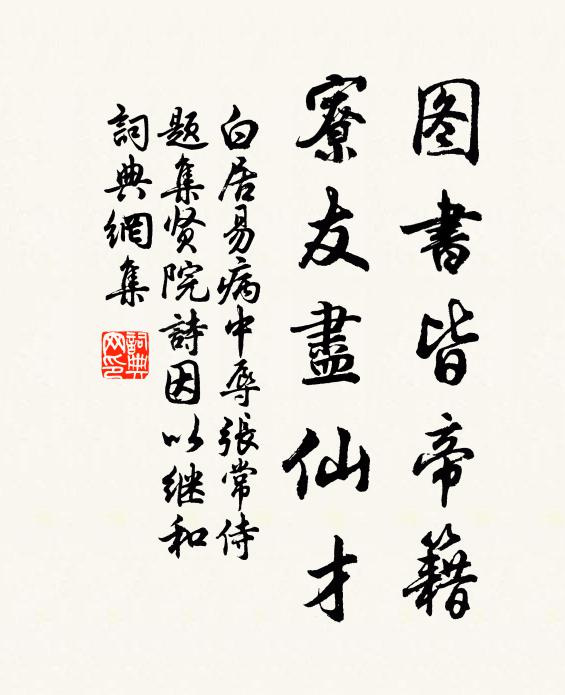 图書皆帝籍
寮友盡仙才
白居易病中辱張常侍
题集贤院詩因以继和
詞典網集
詞典网印